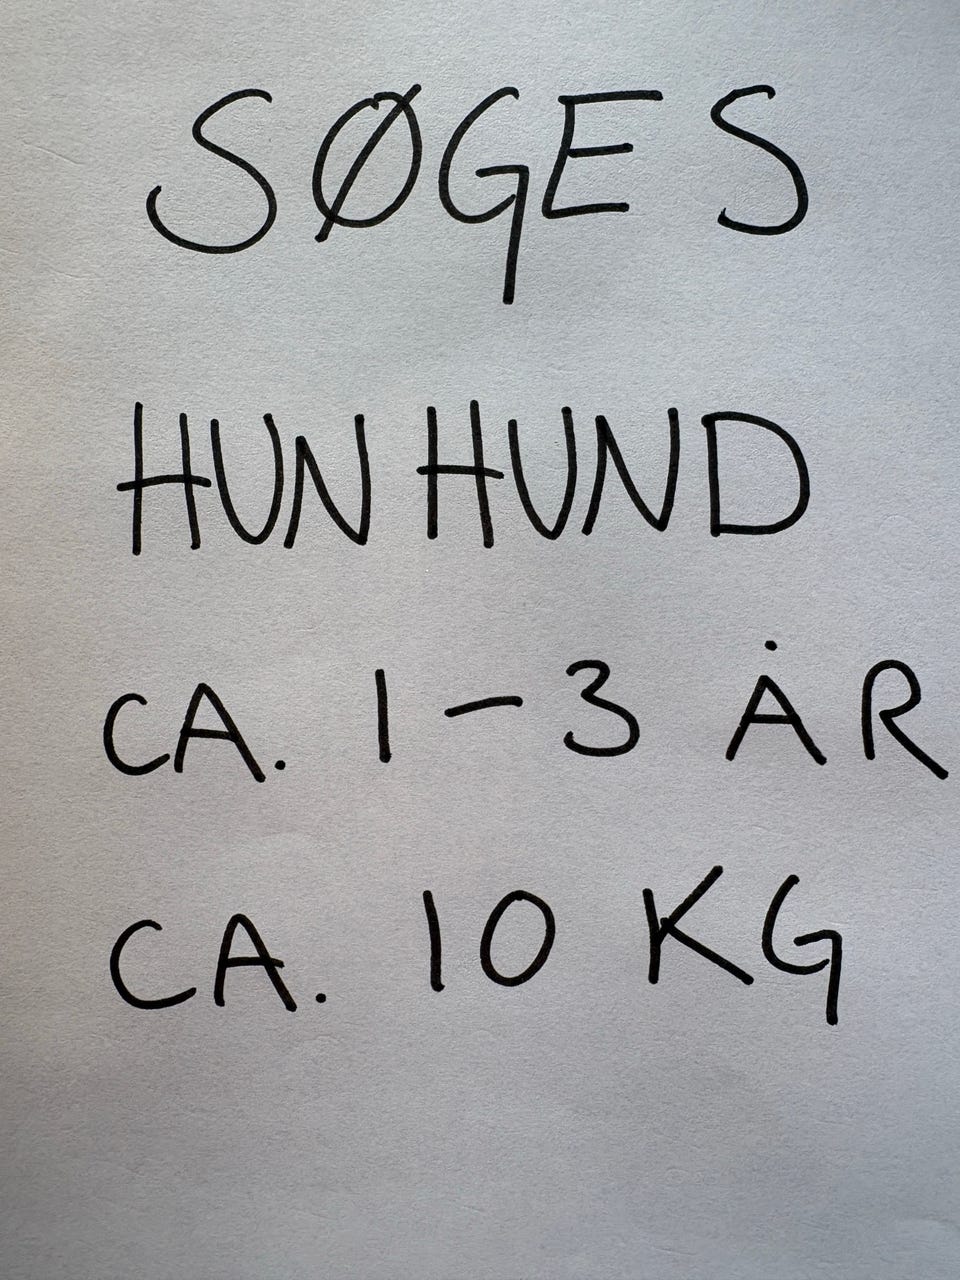 SØGES
HUNHUND
CA. 1-3 ÅR
CA. 10 KG